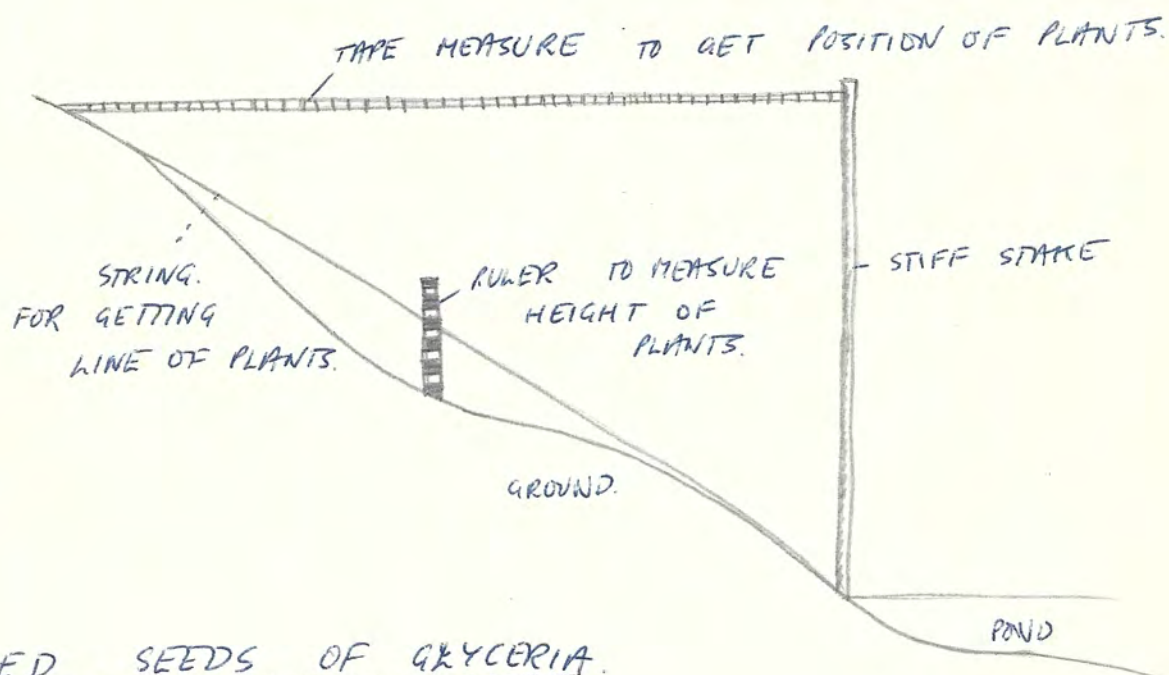 TAPE MEASURE TO GET POSITION OF PLANTS.
STRING.
FOR GETTING
LINE OF PLANTS.
RULER TO MEASURE
HEIGHT OF
PLANTS.
STIFF STAKE
GROUND.
POND
ED SEEDS OF GLYCERIA.